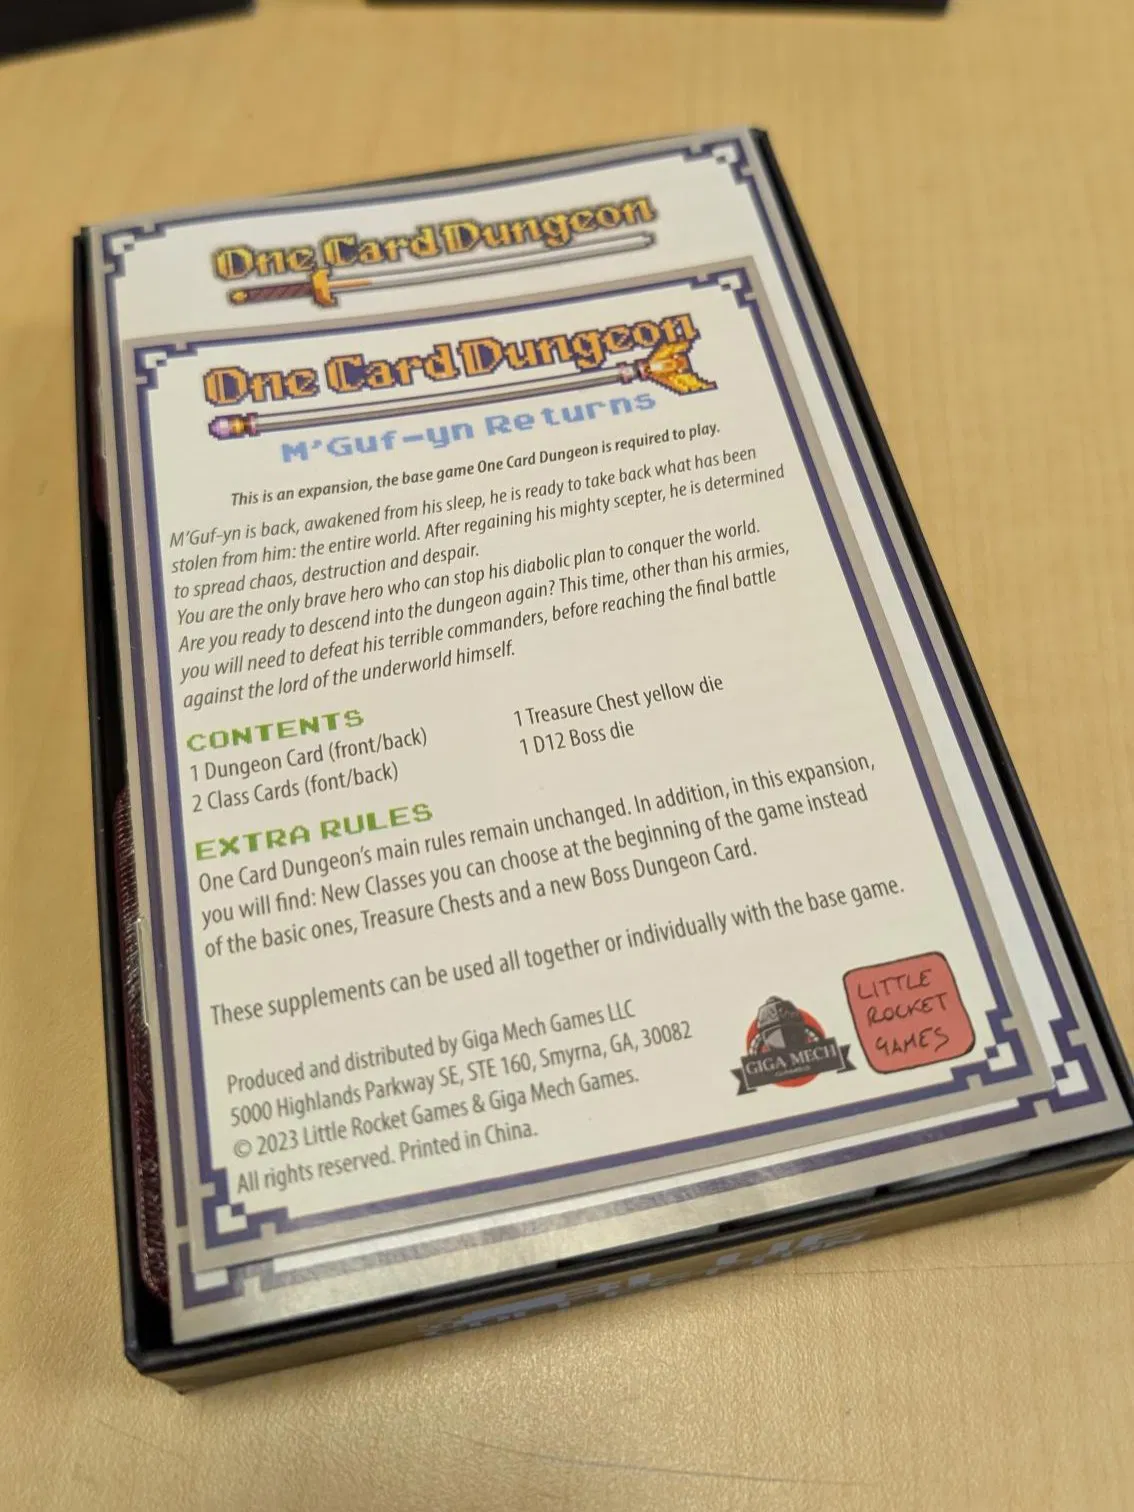 One Card Dungeon
One Card Dungeon
M'Guf-yn Returns
This is an expansion, the base game One Card Dungeon is required to play.
M'Guf-yn is back, awakened from his sleep, he is ready to take back what has been
stolen from him: the entire world. After regaining his mighty scepter, he is determined
to spread chaos, destruction and despair.
You are the only brave hero who can stop his diabolic plan to conquer the world.
Are you ready to descend into the dungeon again? This time, other than his armies,
you will need to defeat his terrible commanders, before reaching the final battle
against the lord of the underworld himself.
CONTENTS
1 Dungeon Card (front/back)
2 Class Cards (font/back)
1 Treasure Chest yellow die
1 D12 Boss die
EXTRA RULES
One Card Dungeon's main rules remain unchanged. In addition, in this expansion,
you will find: New Classes you can choose at the beginning of the game instead
of the basic ones, Treasure Chests and a new Boss Dungeon Card.
These supplements can be used all together or individually with the base game.
Produced and distributed by Giga Mech Games LLC
5000 Highlands Parkway SE, STE 160, Smyrna, GA, 30082
© 2023 Little Rocket Games & Giga Mech Games.
All rights reserved. Printed in China.
GIGA MECH
LITTLE
ROCKET
GAMES